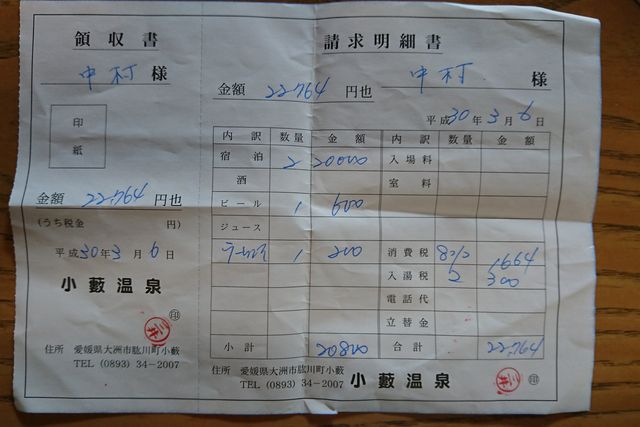 領収書
中村 様
印
紙
金額 22,764 円也
(うち税金 円)
平成30年3月6日
小藪温泉
㊞
住所 愛媛県大洲市肱川町小藪
TEL (0893) 34-2007
請求明細書
金額 22,764 円也 中村 様
平成30年3月6日
内訳 数量 金額 内訳 数量 金額
宿泊 2 20000 入場料
酒 室料
ビール 1 600
ジュース
1 200 消費税 8% 1,664
入湯税 2 300
電話代
立替金
小計 20800 合計 22,764
住所 愛媛県大洲市肱川町小藪
TEL (0893) 34-2007 小藪温泉 ㊞